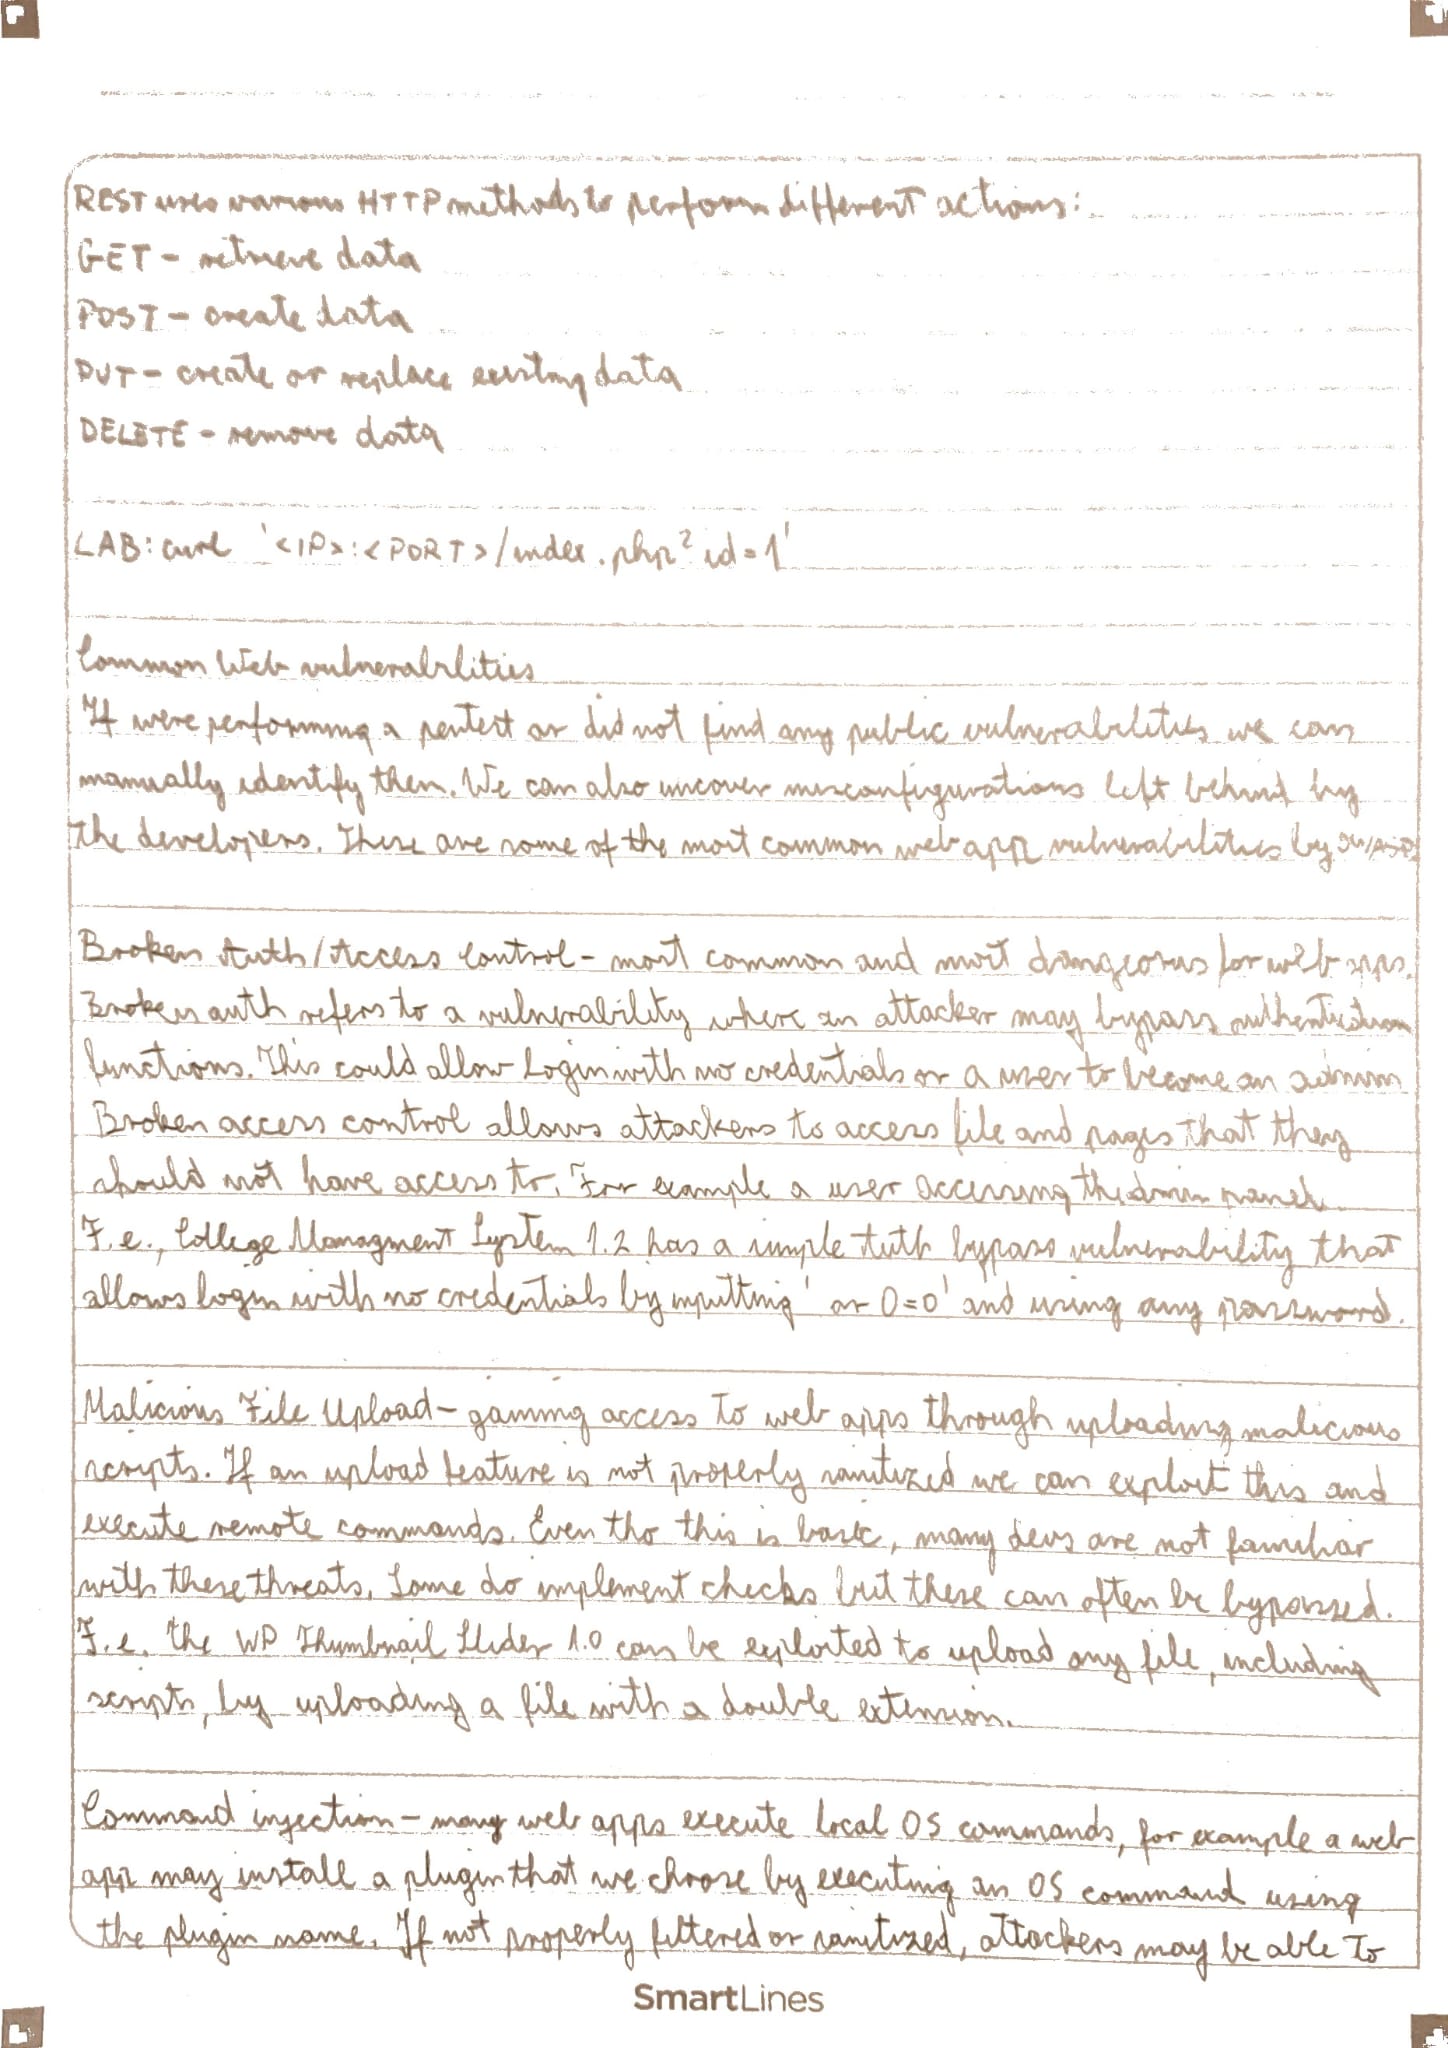 REST uses various HTTP methods to perform different actions:
GET - retrieve data
POST - create data
PUT - create or replace existing data
DELETE - remove data
LAB: curl '<IP>:<PORT>/index.php?id=1'
Common Web vulnerabilities
If were performing a pentest or did not find any public vulnerabilities we can
manually identify them. We can also uncover misconfigurations left behind by
the developers. These are some of the most common web app vulnerabilities by OWASP.
Broken Auth/Access Control - most common and most dangeorus for web apps.
Broken auth refers to a vulnerability where an attacker may bypass authentication
functions. This could allow login with no credentials or a user to become an admin
Broken access control allows attackers to access file and pages that they
should not have access to. For example a user accessing the admin panel.
F.e., College Managment System 1.2 has a simple Auth bypass vulnerability that
allows login with no credentials by inputting ' or 0=0 ' and using any password.
Malicious File Upload - gaining access to web apps through uploading malicious
scripts. If an upload feature is not properly sanitized we can exploit this and
execute remote commands. Even tho this is basic, many devs are not familiar
with these threats. Some do implement checks but these can often be bypassed.
F.e. the WP Thumbnail Slider 1.0 can be exploited to upload any file, including
scripts, by uploading a file with a double extension.
Command injection - many web apps execute local OS commands, for example a web
app may install a plugin that we choose by executing an OS command using
the plugin name. If not properly filtered or sanitized, attackers may be able to
SmartLines